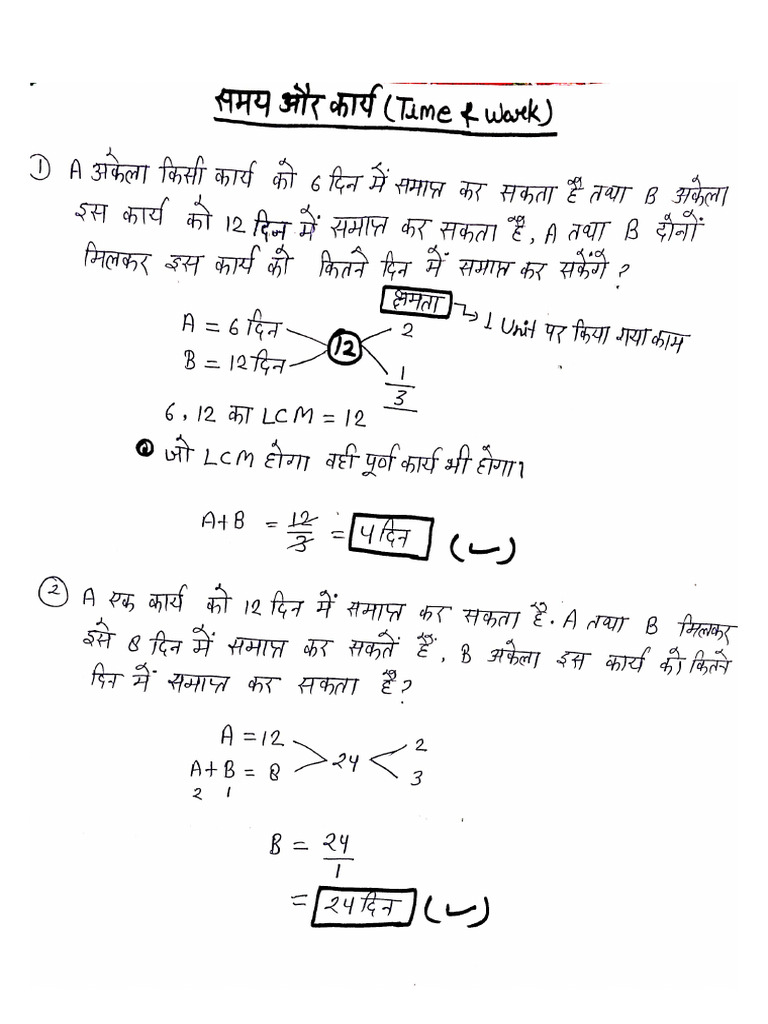 समय और कार्य (Time & Work)
① A अकेला किसी कार्य को 6 दिन में समाप्त कर सकता है तथा B अकेला
इस कार्य को 12 दिन में समाप्त कर सकता है, A तथा B दोनों
मिलकर इस कार्य को कितने दिन में समाप्त कर सकेंगे ?
क्षमता → 1 Unit पर किया गया काम
A = 6 दिन
B = 12 दिन
12
2
1
3
6, 12 का LCM = 12
जो LCM होगा वही पूर्ण कार्य भी होगा।
A+B = 12/3 = 4 दिन (✓)
② A एक कार्य को 12 दिन में समाप्त कर सकता है. A तथा B मिलकर
इसे 8 दिन में समाप्त कर सकतें हैं, B अकेला इस कार्य को कितने
दिन में समाप्त कर सकता है ?
A = 12
A+B = 8
2 1
24
2
3
B = 24/1
= 24 दिन (✓)